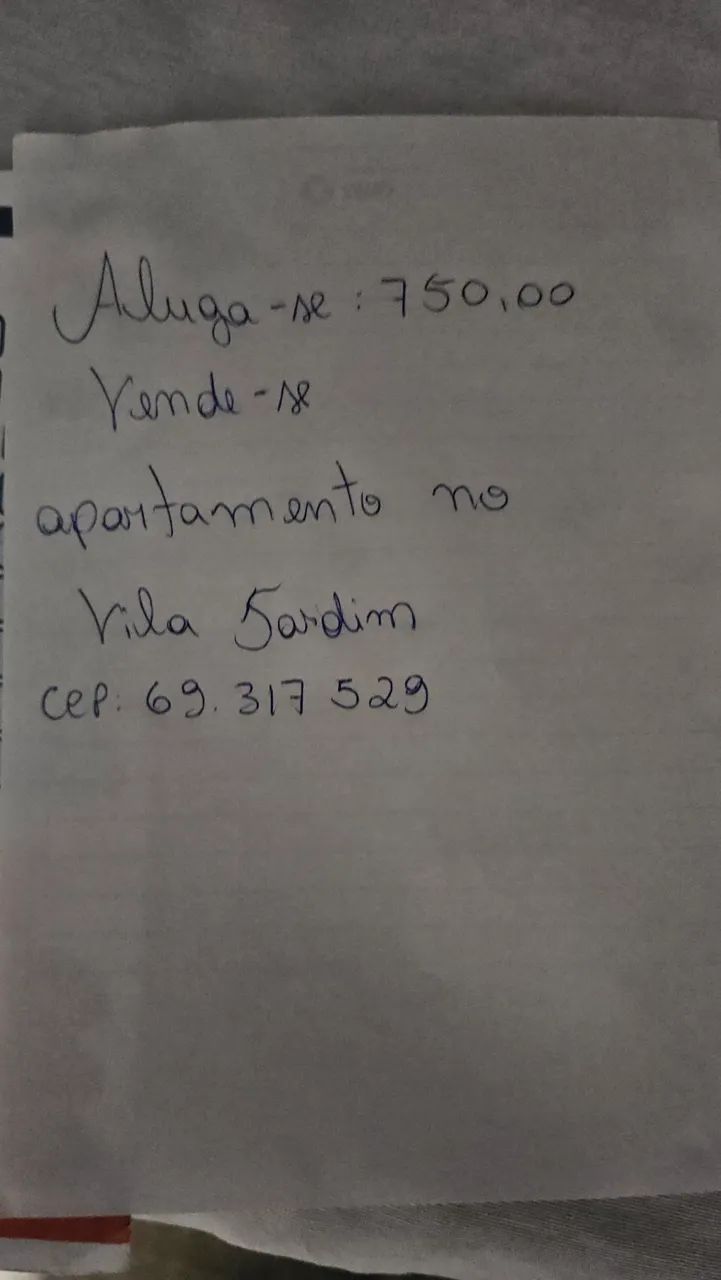 Aluga-se: 750,00
Vende-se
apartamento no
Vila Jardim
CEP: 69.317 529